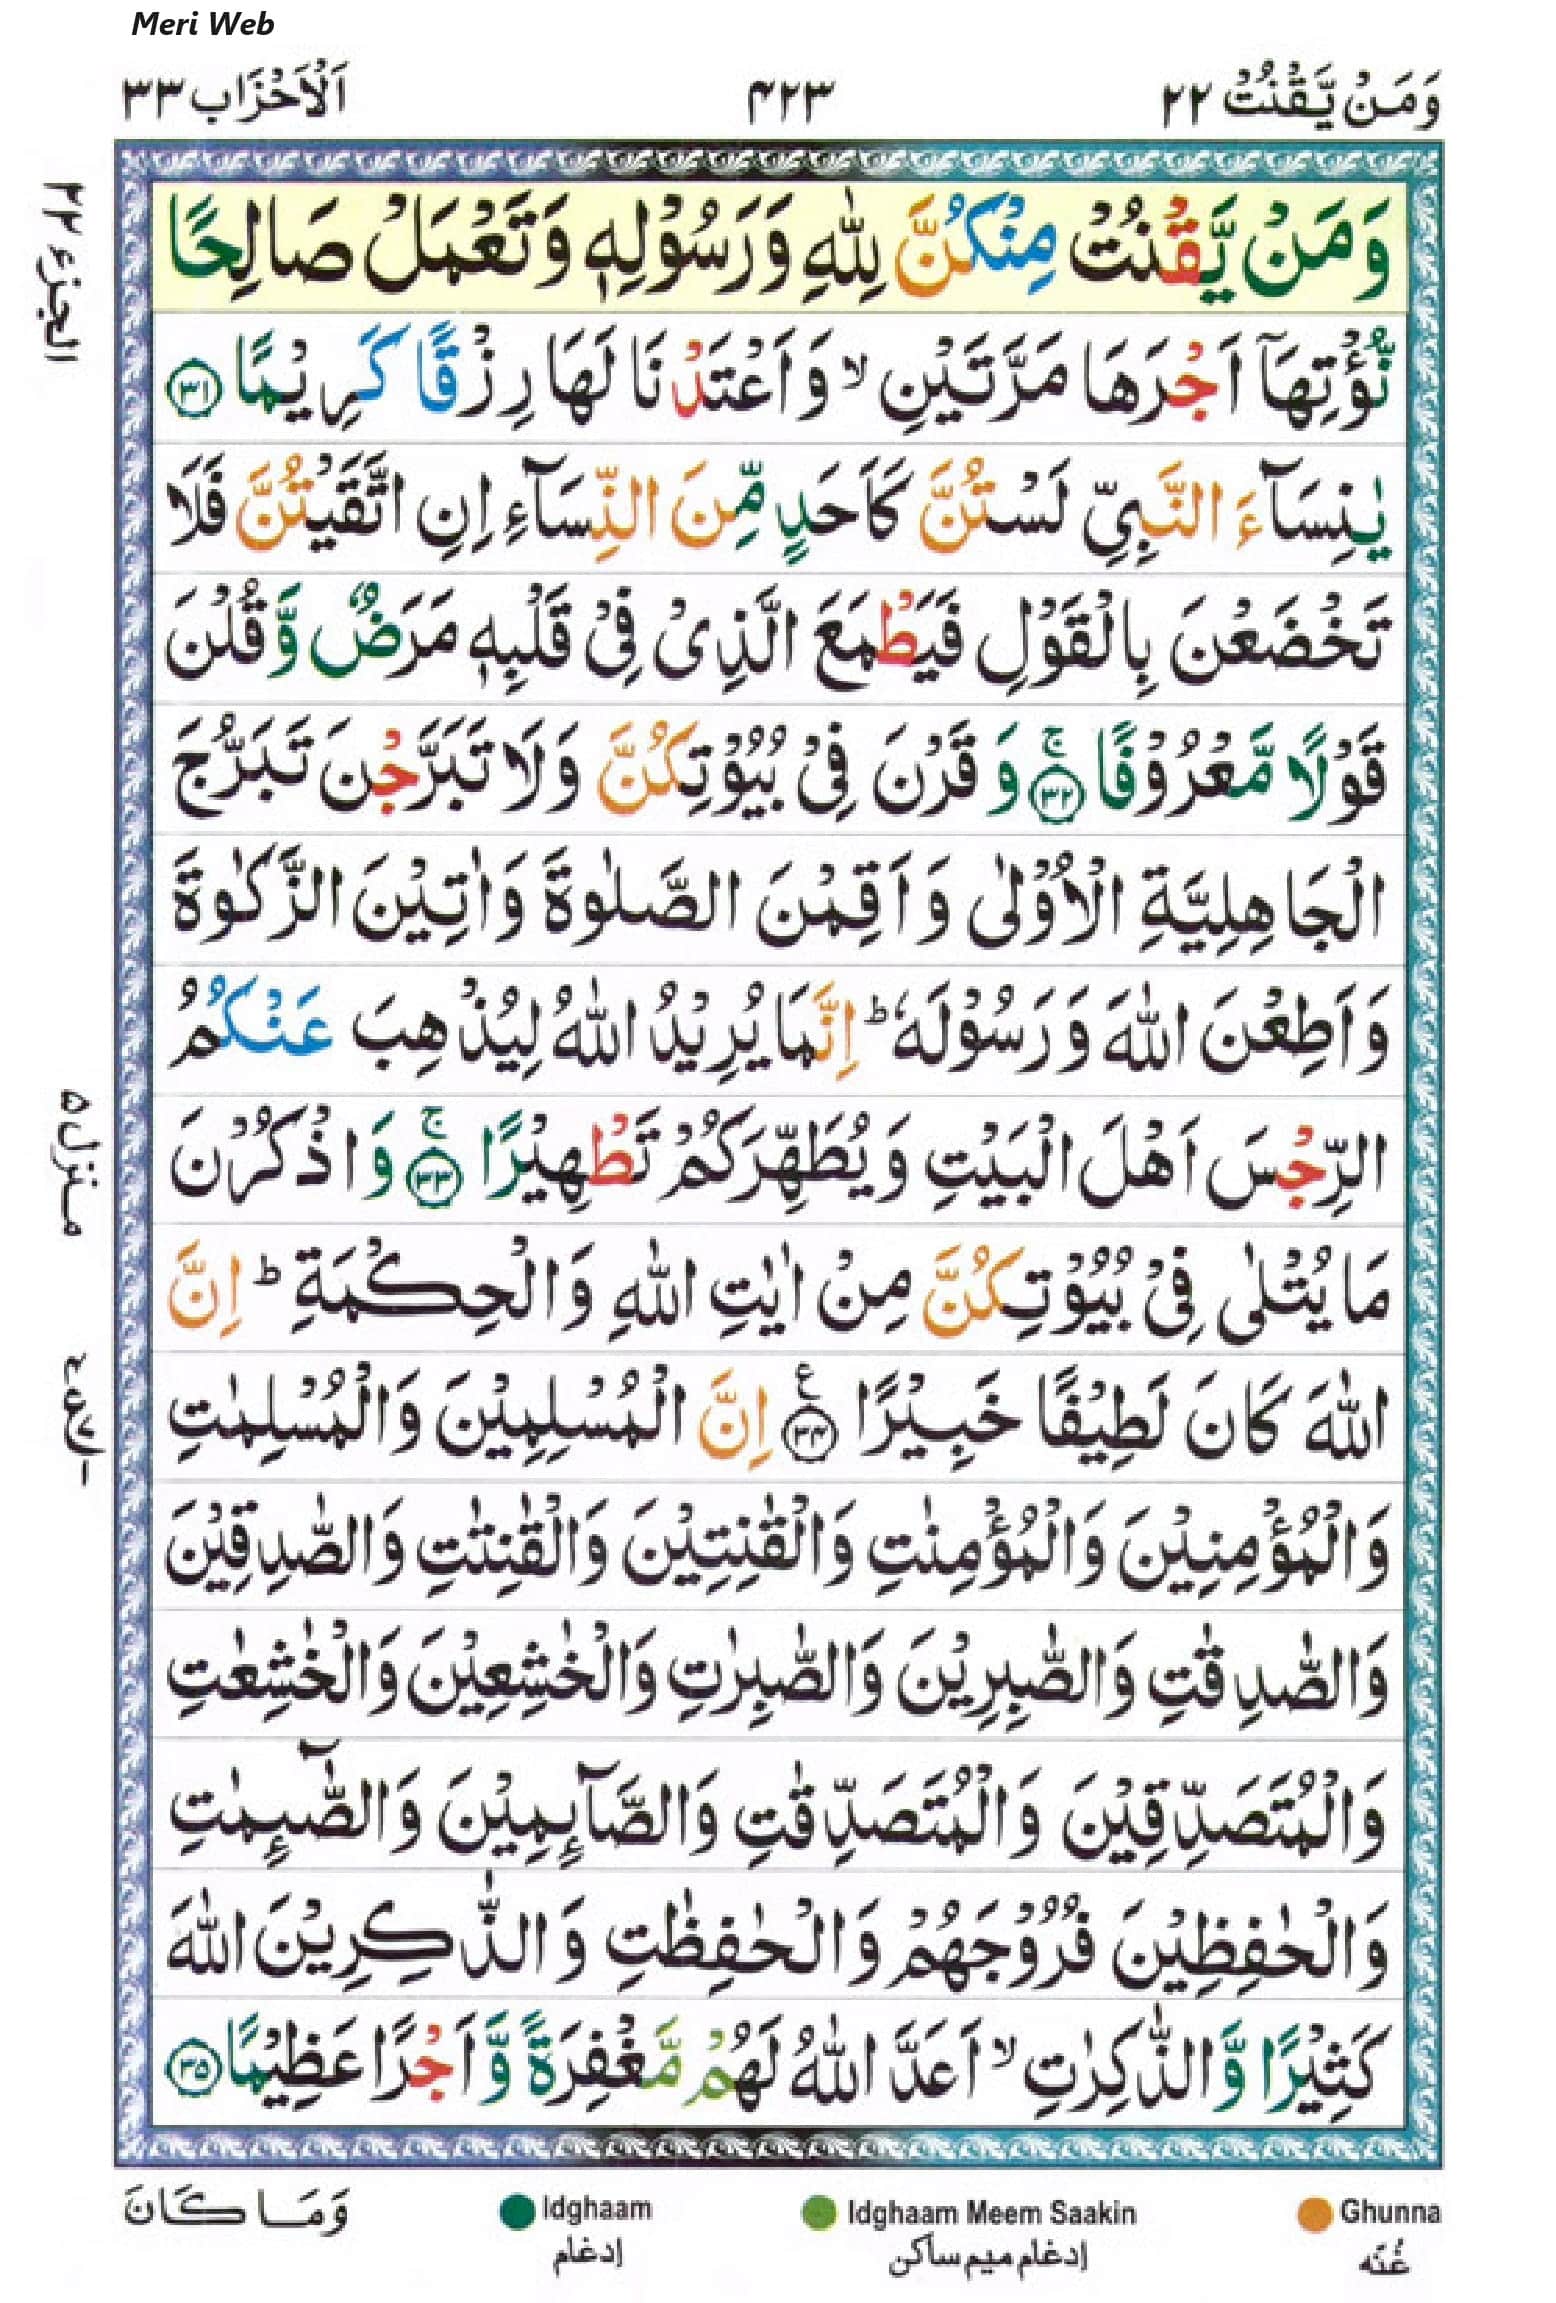 Meri Web
وَمَنْ يَّقْنُتْ ٢٢
٤٢٣
اَلْاَحْزَاب ٣٣
وَمَنْ يَّقْنُتْ مِنْكُنَّ لِلّٰهِ وَرَسُوْلِهٖ وَتَعْمَلْ صَالِحًا
نُّؤْتِهَآ اَجْرَهَا مَرَّتَيْنِ ۙ وَاَعْتَدْنَا لَهَا رِزْقًا كَرِيْمًا ﴿٣١﴾
يٰنِسَآءَ النَّبِيِّ لَسْتُنَّ كَاَحَدٍ مِّنَ النِّسَآءِ اِنِ اتَّقَيْتُنَّ فَلَا
تَخْضَعْنَ بِالْقَوْلِ فَيَطْمَعَ الَّذِىْ فِىْ قَلْبِهٖ مَرَضٌ وَّقُلْنَ
قَوْلًا مَّعْرُوْفًا ﴿٣٢﴾ ۚ وَقَرْنَ فِىْ بُيُوْتِكُنَّ وَلَا تَبَرَّجْنَ تَبَرُّجَ
الْجَاهِلِيَّةِ الْاُوْلٰى وَاَقِمْنَ الصَّلٰوةَ وَاٰتِيْنَ الزَّكٰوةَ
وَاَطِعْنَ اللّٰهَ وَرَسُوْلَهٗ ؕ اِنَّمَا يُرِيْدُ اللّٰهُ لِيُذْهِبَ عَنْكُمُ
الرِّجْسَ اَهْلَ الْبَيْتِ وَيُطَهِّرَكُمْ تَطْهِيْرًا ﴿٣٣﴾ ۚ وَاذْكُرْنَ
مَا يُتْلٰى فِىْ بُيُوْتِكُنَّ مِنْ اٰيٰتِ اللّٰهِ وَالْحِكْمَةِ ؕ اِنَّ
اللّٰهَ كَانَ لَطِيْفًا خَبِيْرًا ﴿٣٤﴾ ع اِنَّ الْمُسْلِمِيْنَ وَالْمُسْلِمٰتِ
وَالْمُؤْمِنِيْنَ وَالْمُؤْمِنٰتِ وَالْقٰنِتِيْنَ وَالْقٰنِتٰتِ وَالصّٰدِقِيْنَ
وَالصّٰدِقٰتِ وَالصّٰبِرِيْنَ وَالصّٰبِرٰتِ وَالْخٰشِعِيْنَ وَالْخٰشِعٰتِ
وَالْمُتَصَدِّقِيْنَ وَالْمُتَصَدِّقٰتِ وَالصَّآىِٕمِيْنَ وَالصّٰٓىِٕمٰتِ
وَالْحٰفِظِيْنَ فُرُوْجَهُمْ وَالْحٰفِظٰتِ وَالذّٰكِرِيْنَ اللّٰهَ
كَثِيْرًا وَّالذّٰكِرٰتِ ۙ اَعَدَّ اللّٰهُ لَهُمْ مَّغْفِرَةً وَّاَجْرًا عَظِيْمًا ﴿٣٥﴾
الجزء ٢٢
منزل ٥
Ghunna
غُنّه
Idghaam Meem Saakin
إدغام ميم ساكن
Idghaam
إدغام
وَمَا كَانَ